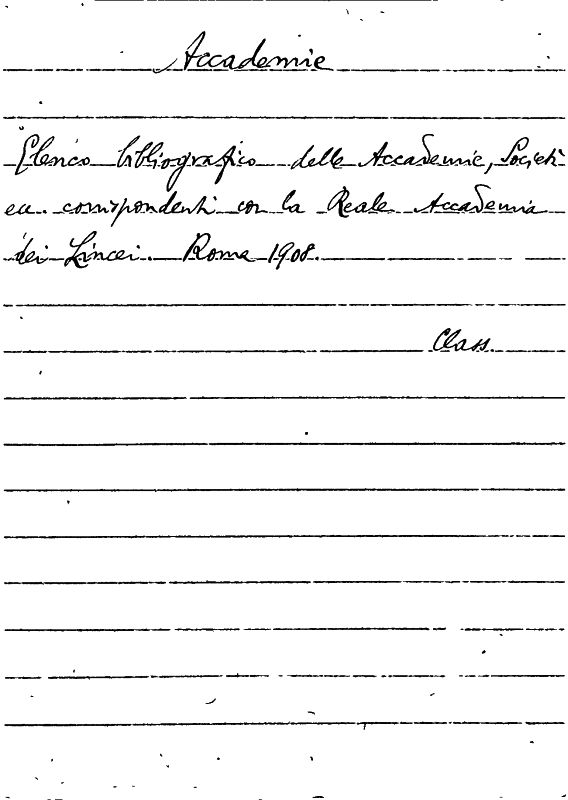 Accademie
Elenco bibliografico delle Accademie, Società
ecc. corrispondenti con la Reale Accademia
dei Lincei. Roma 1908.
Class.